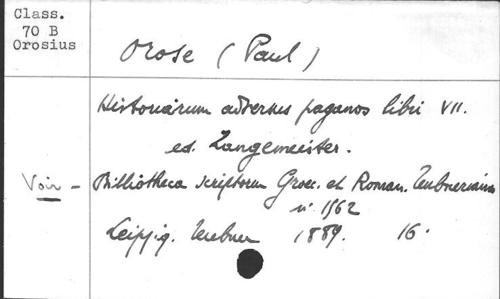 Class.
70 B
Orosius
Orose (Paul)
Historiarum adversus paganos libri VII.
ed. Zangemeister.
Voir - Bibliotheca scriptorum Graec. et Roman. Teubneriana
n° 1562
Leipzig. Teubner 1889. 16°